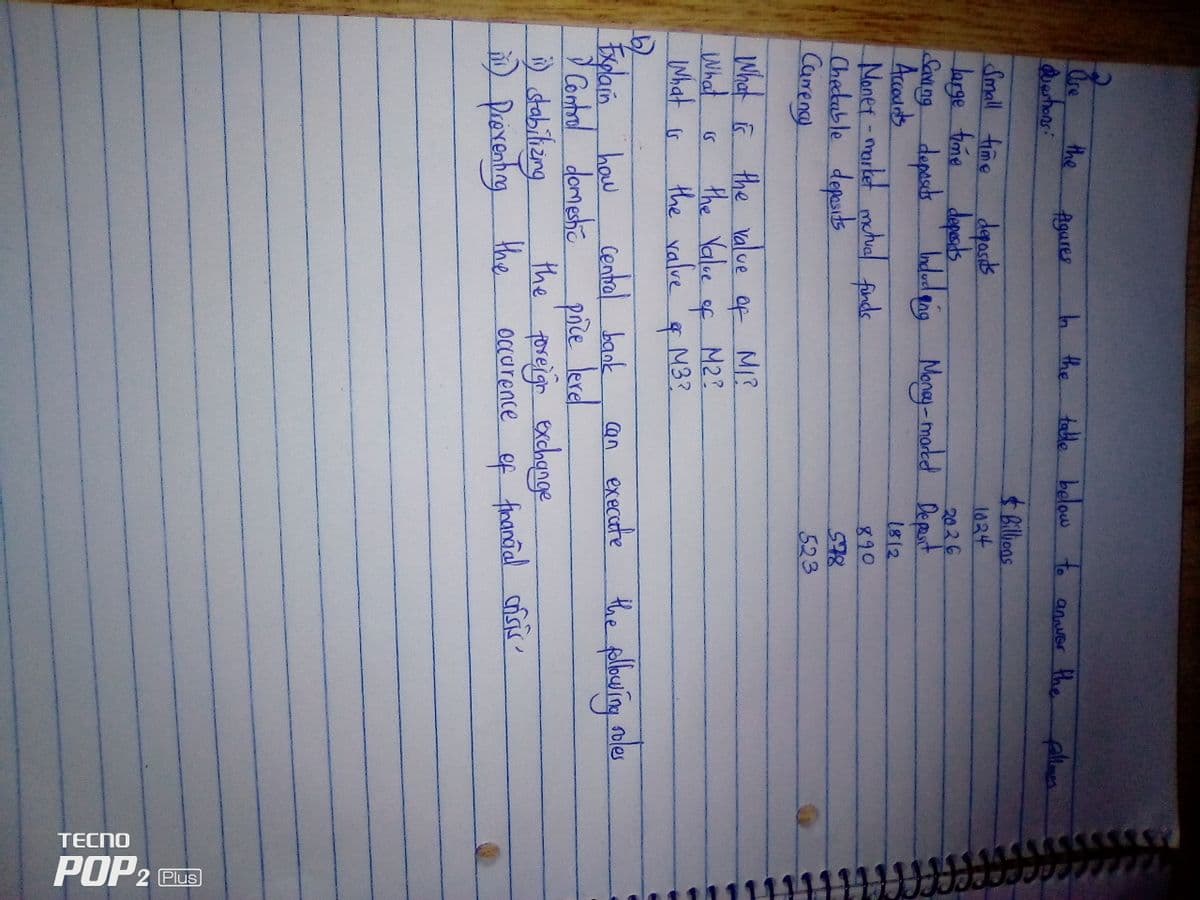 2
Use the figures in the table below to answer the follows
Questions:
$ Billions
Small time deposits 1024
Large time deposits 2026
Saving deposits Including Money-market Deposit
Accounts 1812
Monet-market mutual funds 890
Checkable deposits 578
Currency 523
What is the value of M1?
What is the Value of M2?
What is the value of M3?
b)
Explain how central bank can execute the following roles
i) Control domestic price level
ii) stabilizing the foreign exchange
iii) Preventing the occurence of financial crisis.
TECNO
POP 2 Plus